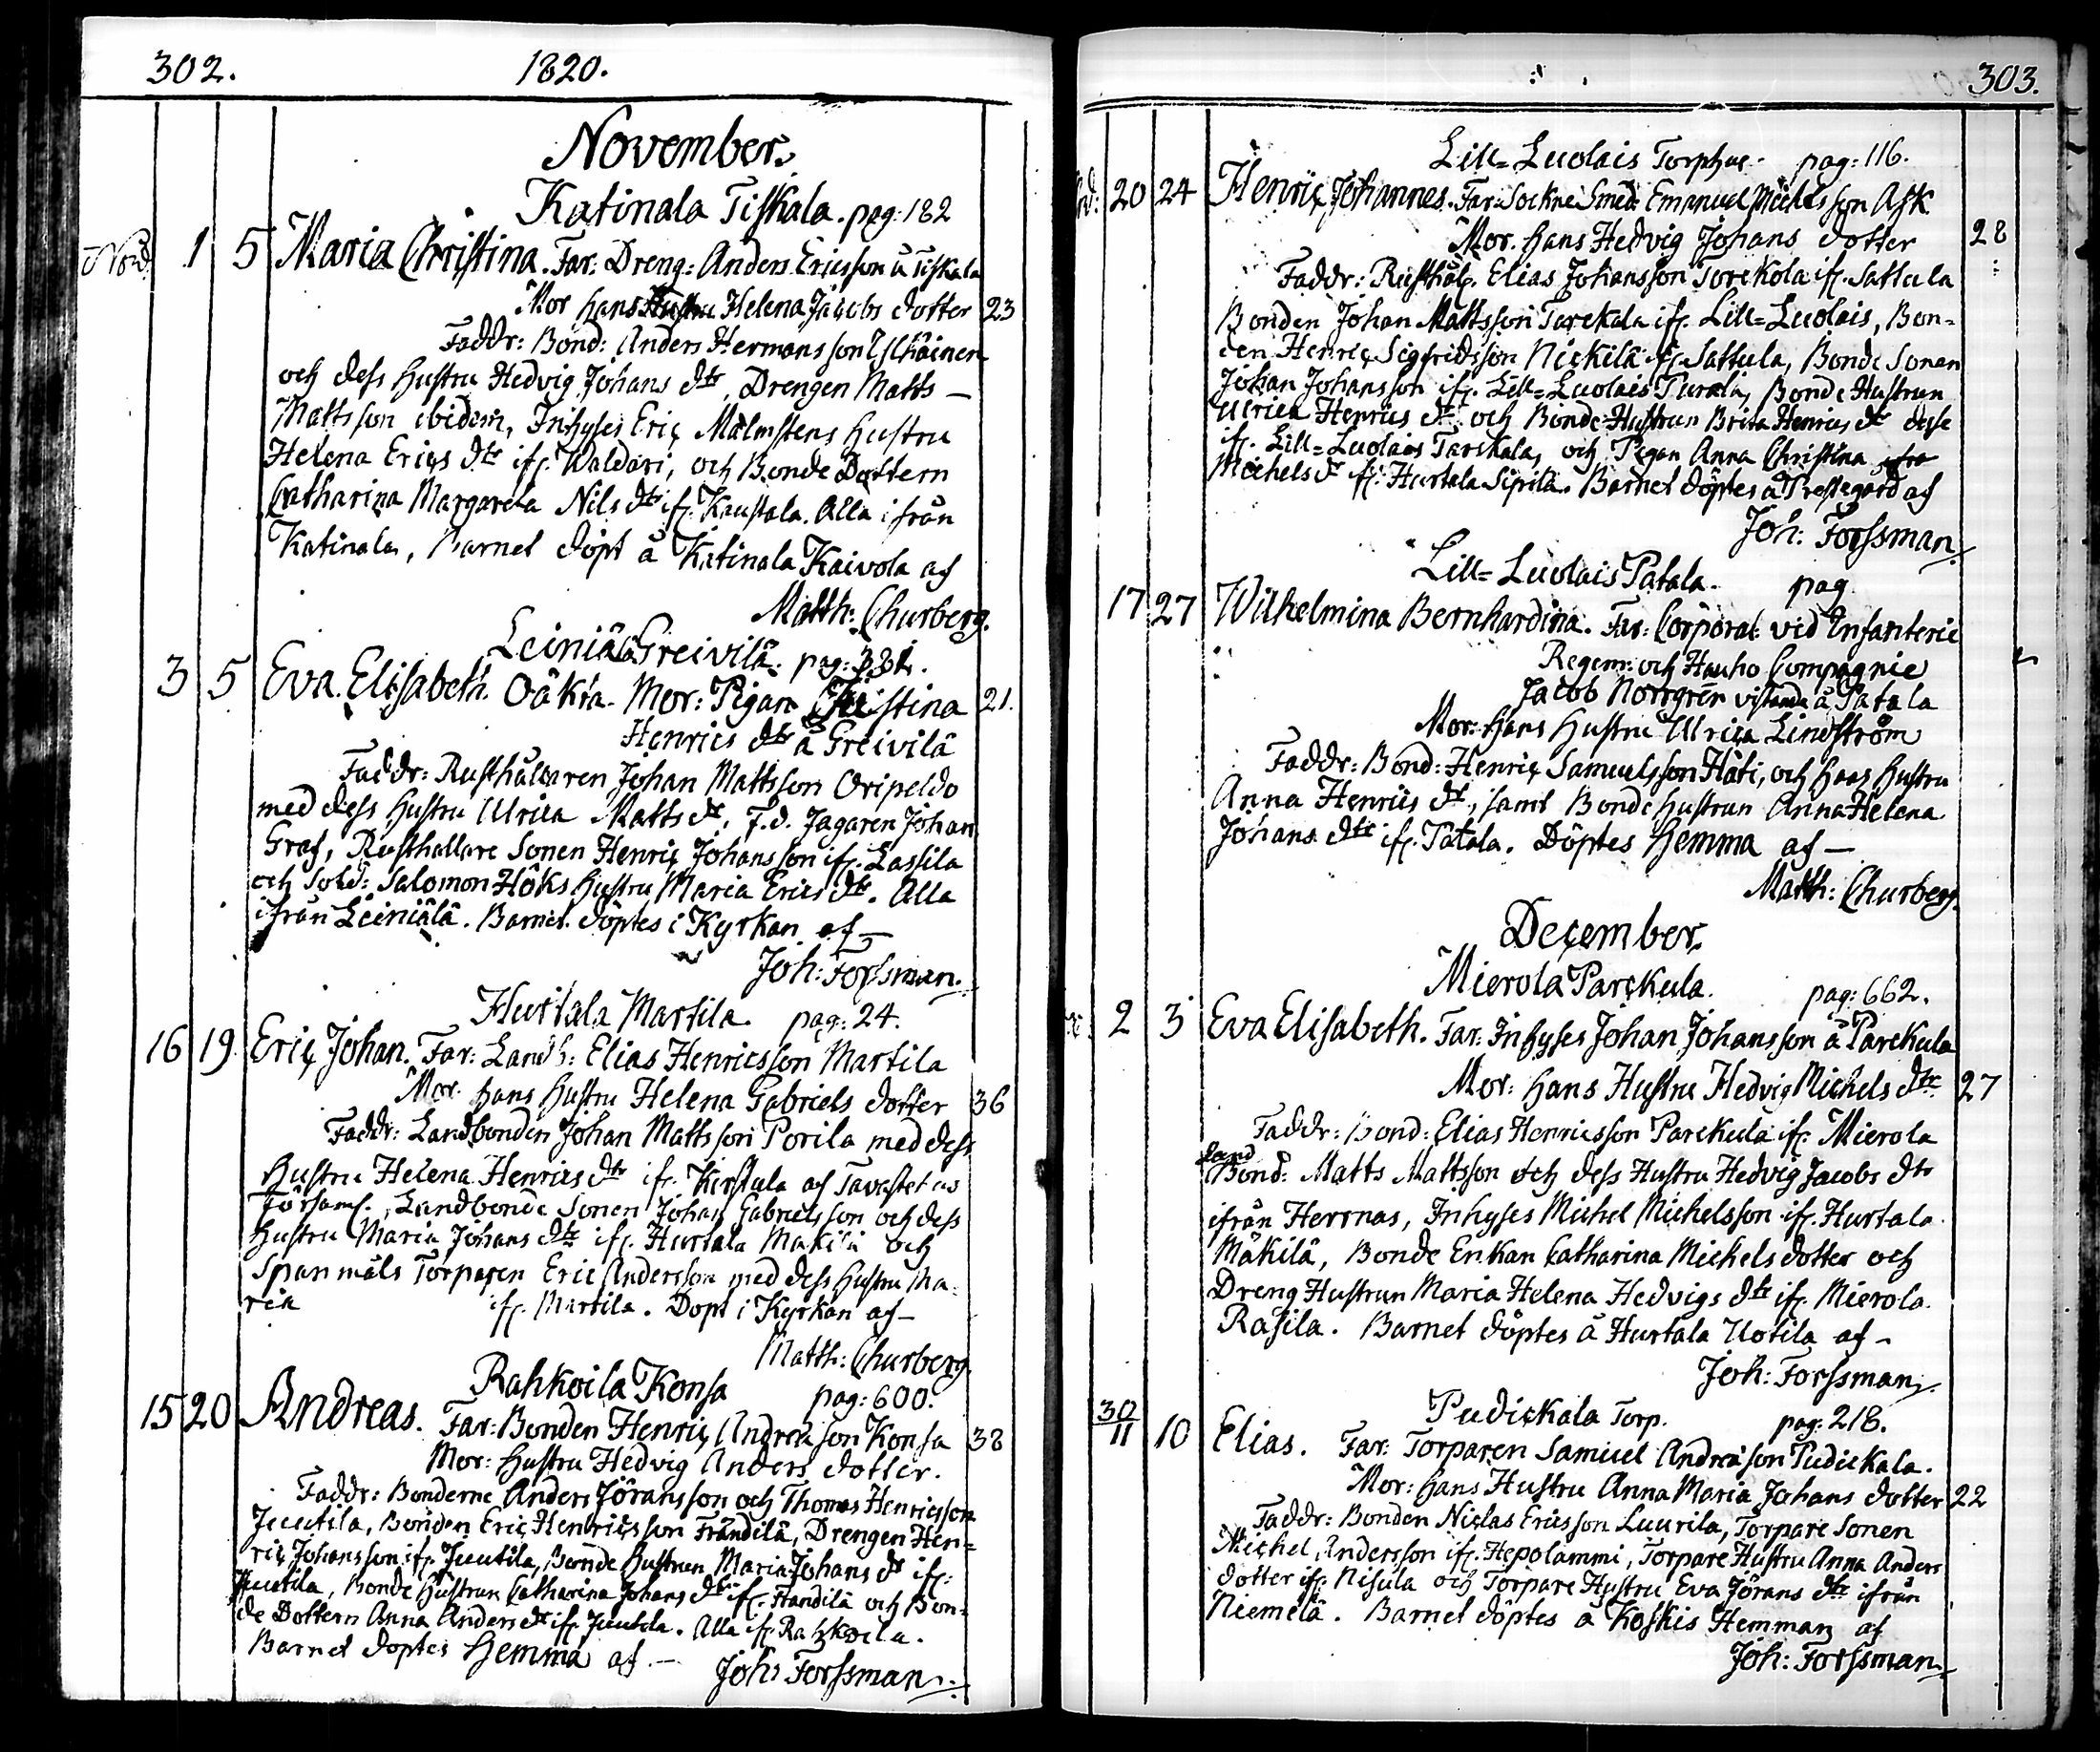 302. 1820.
November.
Katinala Tiskala. pag: 182
Nov: 1 5 Maria Christina. Far: Dreng: Anders Ericsson å Tiskala
Mor hans Hustru Helena Jacobs dotter 23
Faddr: Bond: Anders Hermansson
och dess Hustru Hedvig Johans dtr, Drengen Matts –
Mattsson ibidem, Inhyses Eric Malmstens Hustru
Helena Erics dtr ifr. Waldari, och Bonde Dottern
Catharina Margareta Nils dtr ifr. Kaustala. Alla ifrån
Katinala, Barnet döpt å Katinala Kaivola af
Matth: Churberg.
Leiniälä Greivilä. pag: 331.
3 5 Eva Elisabeth. Oäkta. Mor: Pigan Christina 21.
Henrics dtr å Greivilä
Faddr: Rusthållaren Johan Mattsson Oripeldo
med dess Hustru Ulrica Matts dtr, F.d. Jagaren Johan
Graf, Rusthållare Sonen Henric Johansson ifr. Lassila
och Sold: Salomon Höks Hustru Maria Erics dtr. Alla
ifrån Leiniälä. Barnet döptes i Kyrkan af –
Joh: Forssman.
Hurtala Martila. pag: 24.
16 19 Eric Johan. Far: Landb: Elias Henricsson Martila
Mor. hans Hustru Helena Gabriels dotter 36
Faddr: Landbonden Johan Mattsson Porila med dess
Hustru Helena Henrics dtr ifr. Kirstula af Tavastehus
Församl., Landbonde Sonen Johan Gabrielsson och dess
Hustru Maria Johans dtr ifr. Hurtala Mäkilä och
Spanmåls Torparen Eric Andersson med dess Hustru Ma-
ria ifr. Martila. Döpt i Kyrkan af –
Matth: Churberg.
Rahkoila Konsa pag: 600.
15 20 Andreas. Far: Bonden Henric Andreason Konsa 38
Mor: Hustru Hedvig Anders dotter.
Faddr: Bönderne Anders Göransson och Thomas Henricsson
Juutila, Bonden Eric Henricsson Frändilä, Drengen Hen-
ric Johansson ifr. Juutila, Bonde Hustrun Maria Johans dr ifr:
Juutila, Bonde Hustrun Catharina Johans dtr ifr. Handilä och Bon-
de Dottern Anna Anders dr ifr. Juutila. Alla ifr. Rahkoila.
Barnet döptes Hemma af. –
Joh: Forssman.
303.
Lill-Luolais Torphus. pag: 116.
20 24 Henric Johannes. Far: Sockne Smed: Emanuel Michelsson Ask
Mor. hans Hedvig Johans dotter 28
Faddr: Rusthål. Elias Johansson Torckola ifr. Sattula
Bonden Johan Mattsson Tarckala ifr. Lill-Luolais, Bon-
den Henric Sigfridsson Nickilä ifr. Sattula, Bonde Sonen
Johan Johansson ifr. Lill-Luolais Purala, Bonde Hustrun
Ulrica Henrics dr. och Bonde Hustrun Brita Henrics dr desse
ifr. Lill-Luolais Tarskala, och Pigan Anna Christina
Michels dr ifr. Hurtala Sipilä. Barnet döptes å Prestegård af
Joh: Forssman.
Lill-Luolais Patala. pag.
17 27 Wilhelmina Bernhardina. Far: Corporal vid Infanterie
Regem: och Hauho Compagnie
Jacob Norrgren vistande å Patala
Mor: hans Hustru Ulrica Lindström
Faddr: Bond: Henric Samuelsson Häti, och hans Hustru
Anna Henrics dr., samt Bonde hustrun Anna Helena
Johans dtr ifr. Patala. Döptes Hemma af –
Matth: Churberg.
December.
Mierola Parckula. pag: 662.
2 3 Eva Elisabeth. Far: Inhyses Johan Johansson å Parckula
Mor: hans Hustru Hedvig Michels dtr 27
Faddr: Bond: Elias Henricsson Parckula ifr. Mierola
Land
Bond: Matts Mattsson och dess Hustru Hedvig Jacobs dtr
ifrån Herrnas, Inhyses Michel Michelsson ifr. Hurtala
Mäkilä, Bonde Enkan Catharina Michels dotter och
Dreng Hustrun Maria Helena Hedvigs dtr ifr. Mierola
Rasila. Barnet döptes å Hurtala Uotila af –
Joh: Forssman.
Pudickala Torp. pag: 218.
30/11 10 Elias. Far: Torparen Samuel Andreason Pudickala.
Mor: hans Hustru Anna Maria Johans dotter 22
Faddr: Bonden Niclas Ericsson Luurila, Torpare Sonen
Michel Andersson ifr. Hepolammi, Torpare Hustru Anna Anders
dotter ifr. Nisula och Torpare Hustru Eva Jörans dtr ifrån
Niemelä. Barnet döptes å Koskis Hemman af
Joh: Forssman.